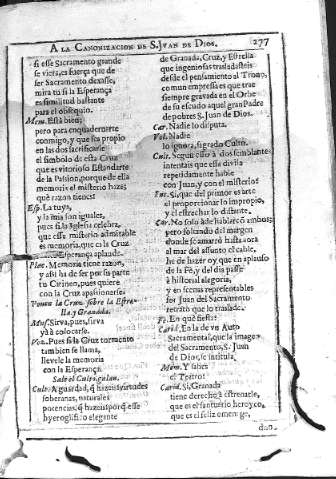 A LA CANONIZACION DE S. JVAN DE DIOS. 277
si esse Sacramento grande
se viera, es fuerça que de
ser Sacramento dexasse,
mira tu si la Esperança
es similitud bastante
para el obsequio.
Mem. Està bien;
pero para enquadernarte
conmigo, y que sea propio
en las dos sacrificarse
el simbolo desta Cruz
que es vitorioso Estandarte
de la Passion, porque de ella
memoria el misterio haze;
què razon tienes?
Esp. La tuya,
y la mia son iguales,
pues si la Iglesia celebra,
que esse misterio admirable
es memoria, que es la Cruz
Esperança aplaude.
Memoria tiene razon,
y assi ha de ser por su parte
tu Cirineo, pues quiere
con la Cruz apassionarse.
Ponen la Cruz sobre la Estre-
lla y Granada.
Mus. Sirva, pues, sirva
yà à colocarse.
Vol. Pues si la Cruz tormento
tambien se llama,
llevele la memoria
con la Esperança.
Sale el Culto galan.
Culto. Aguardad, q̃ hazeis virtudes
soberanas, naturales
potencias, q̃ hazeis porq̃ esse
hyeroglifico elegante
de Granada, Cruz, y Estrella
que ingeniosas trasladasteis
desde el pensamiento al Trono,
como empressa es que trae
siempre gravada en el Orbe
de su escudo aquel gran Padre
de pobres S. Juan de Dios.
Car. Nadie lo disputa.
Vol. Nadie
lo ignora, sagrado Culto.
Cult. Segun esso à dos semblantes
intentais que esse divia
repetidamente hable
con Juan, y con el misterio?
Fe. Si, que del primor es arte
el proporcionar lo impropio,
y el estrechar lo distante.
Car. No solo à de hablar co ambos;
pero saliendo del margen
donde se amarrò hasta aora
al mar del assunto el cable,
he de hazer oy que en aplauso
de la Fè, y del dia passe
à historial alegoria,
y en scenas representables
ser Juan del Sacramento
retrato que lo traslade.
Fe. En què fiesta?
Carid. En la de vn Auto
Sacramental, que la imagen
del Sacramento, S. Juan
de Dios, se intitula.
Mem. Y sabes
el Teatro?
Carid. Si, Granada
tiene derecho à estrenarle,
que es el santuario heroyco,
que es el feliz omenage,